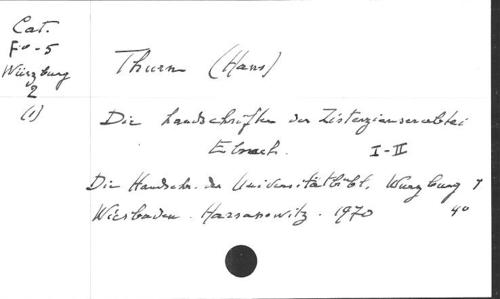 Cat.
Fo - 5
Würzburg
2
(1)
Thurn (Hans)
Die Handschriften der Zisterzienserabtei
Ebrach. I-II
Die Handschr. der Universitätsbibl. Würzburg 1
Wiesbaden. Harrassowitz. 1970 4o